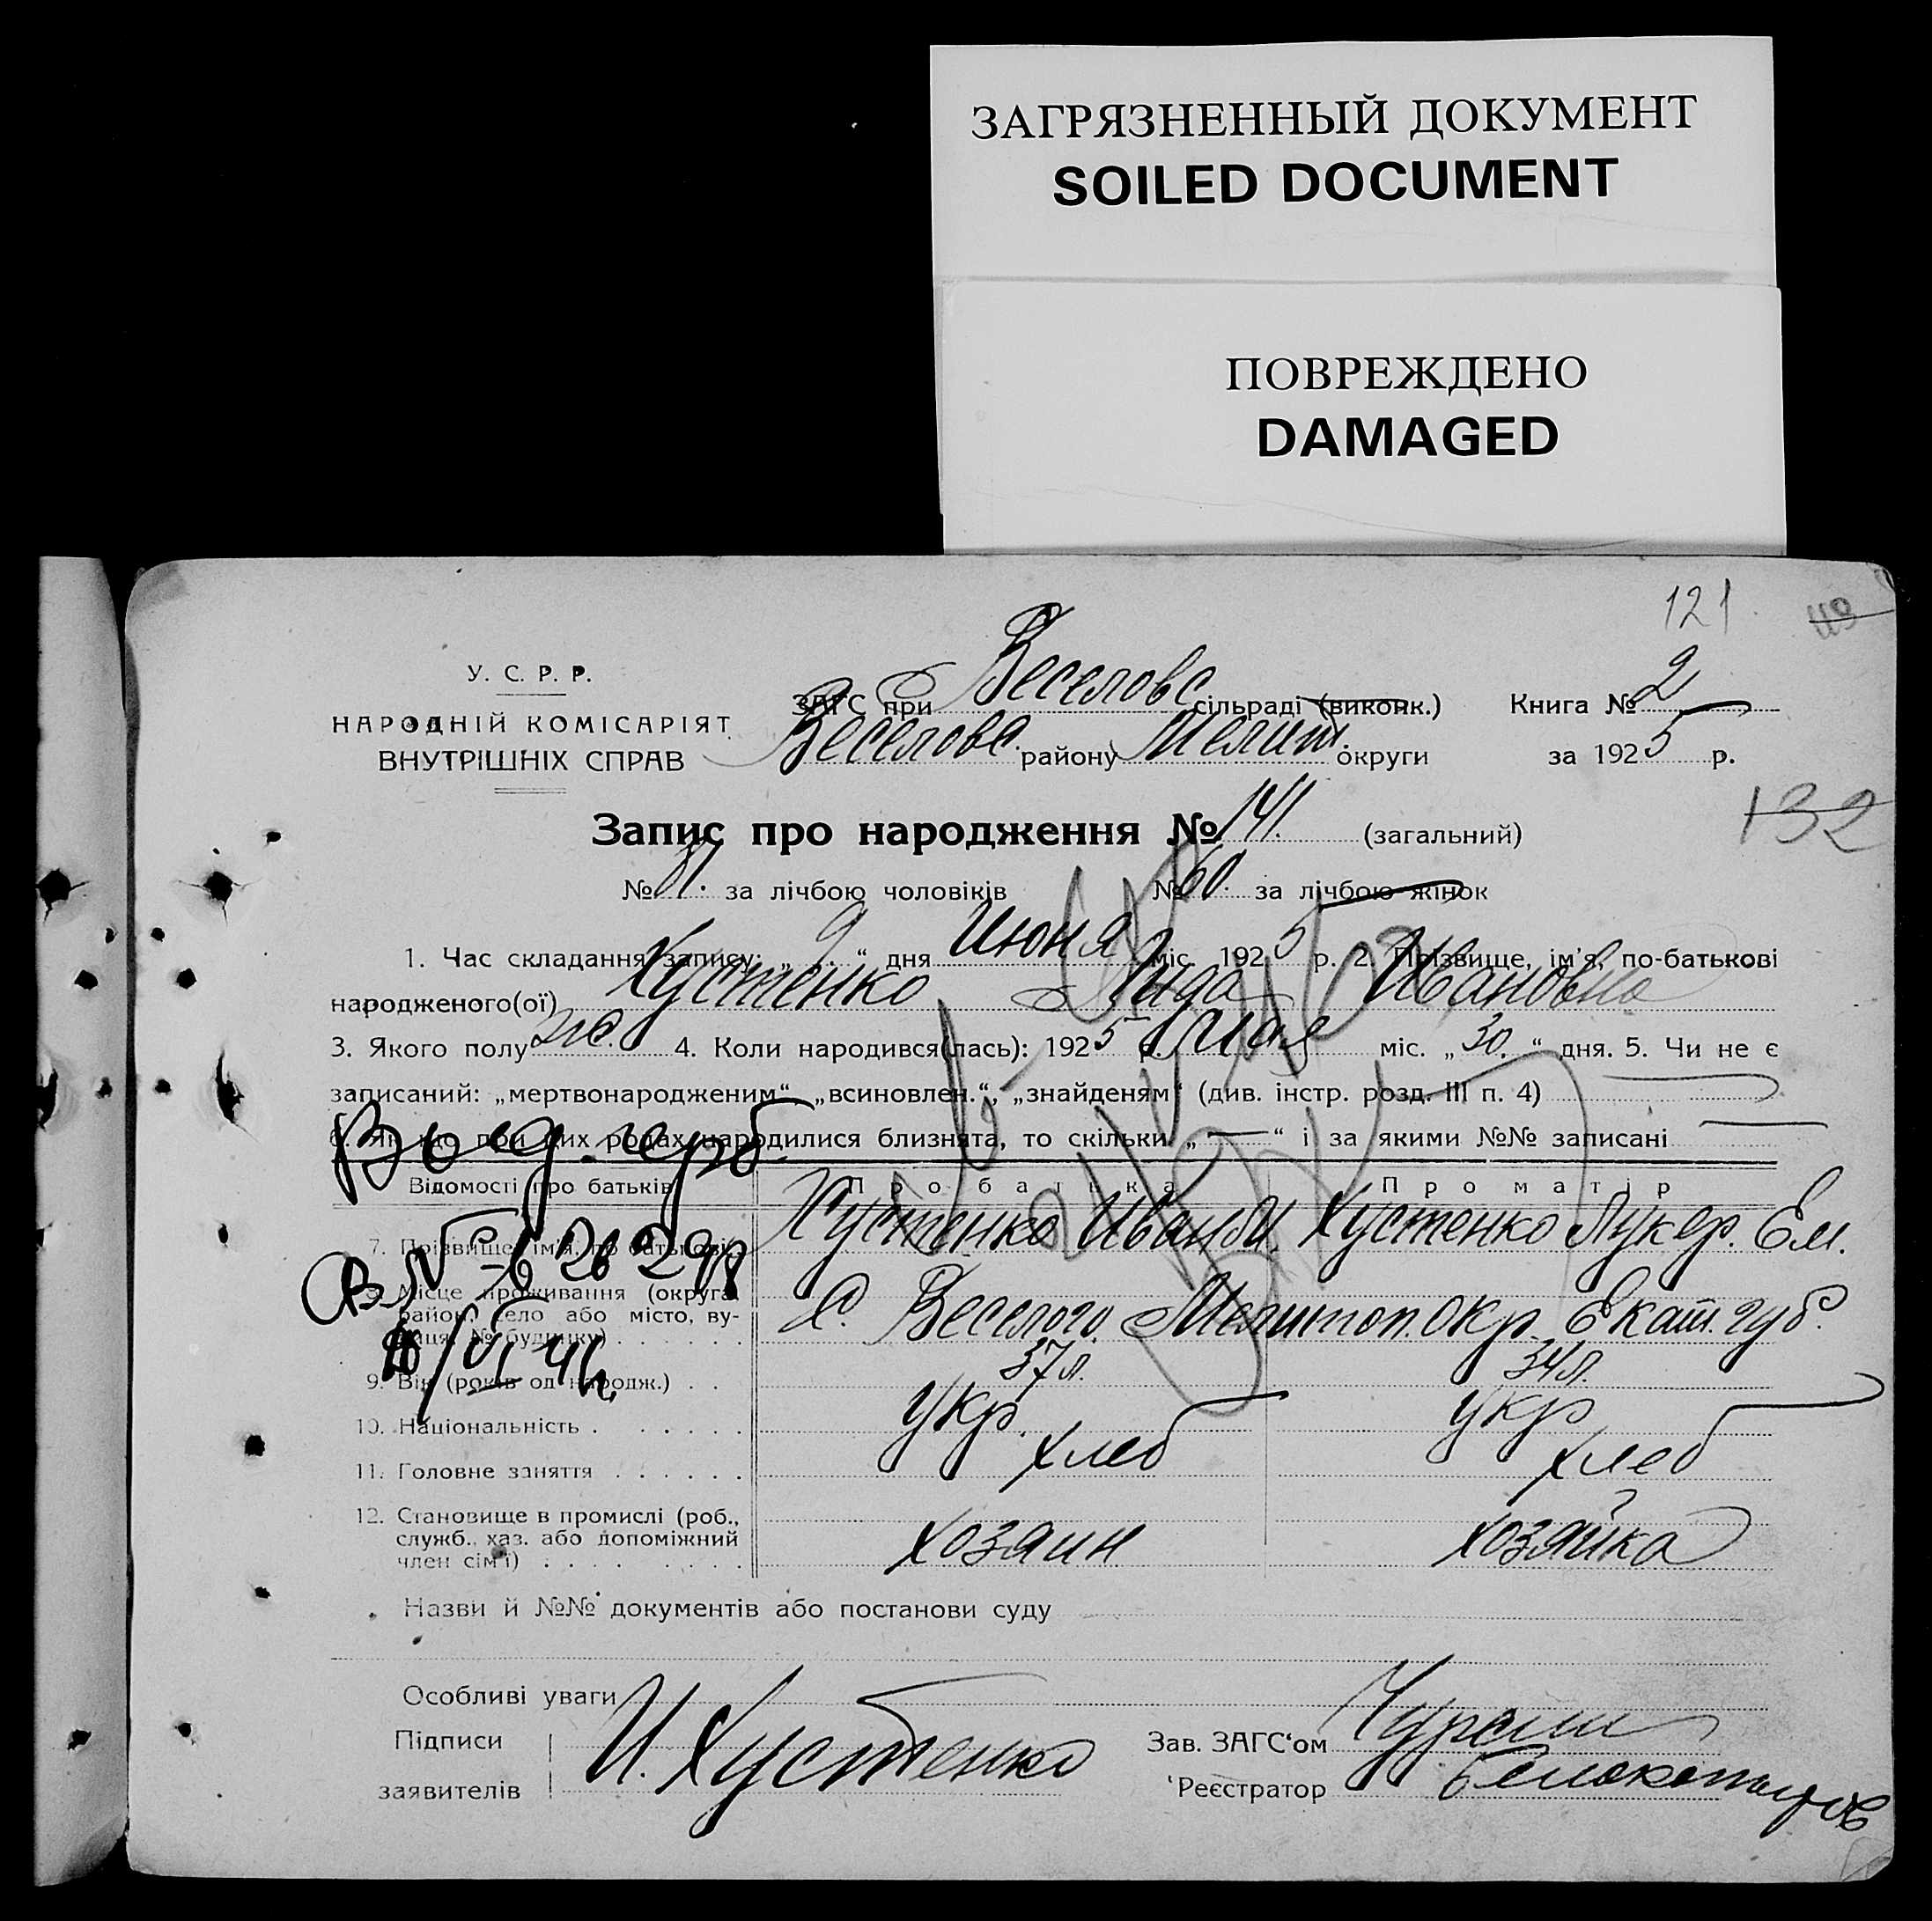 ЗАГРЯЗНЕННЫЙ ДОКУМЕНТ
SOILED DOCUMENT
ПОВРЕЖДЕНО
DAMAGED
121
У. С. Р. Р.
НАРОДНІЙ КОМІСАРІЯТ
ВНУТРІШНІХ СПРАВ
ЗАГС при Веселовс сільраді (виконк.) Книга № 2
Веселовс. району Мелит. округи за 1925 р.
132
Запис про народження № 141. (загальний)
№ 81. за лічбою чоловіків № 60. за лічбою жінок
1. Час складання запису: „9.“ дня Июня міс. 1925 р. 2. Прізвище, ім'я, по-батькові
народженого(ої) Хустенко Лида Ивановна
3. Якого полу ж. 4. Коли народився(лась): 1925 р. мая міс. „30.“ дня. 5. Чи не є
записаний: „мертвонародженим“, „всиновлен.“, „знайденям“ (див. інстр. розд. III п. 4)
6. Як що при цих родах народилися близнята, то скільки „—“ і за якими №№ записані —
Відомості про батьків Про батька Про матір
7. Прізвище, ім'я, по батькові Хустенко Иван И. Хустенко Лукер. Ем.
8. Місце проживання (округа, район, село або місто, вулиця, № будинку) С. Веселого Мелитоп. окр. Екат. губ.
9. Вік (років од народж.) 37 л. 34 л.
10. Національність укр. укр
11. Головне заняття хлеб хлеб
12. Становище в промислі (роб., служб., хаз. або допоміжний член сім'ї) хозяин хозяйка
Назви й №№ документів або постанови суду
Особливі уваги
Підписи заявителів И. Хустенко
Зав. ЗАГС'ом
Реєстратор Белокопытов